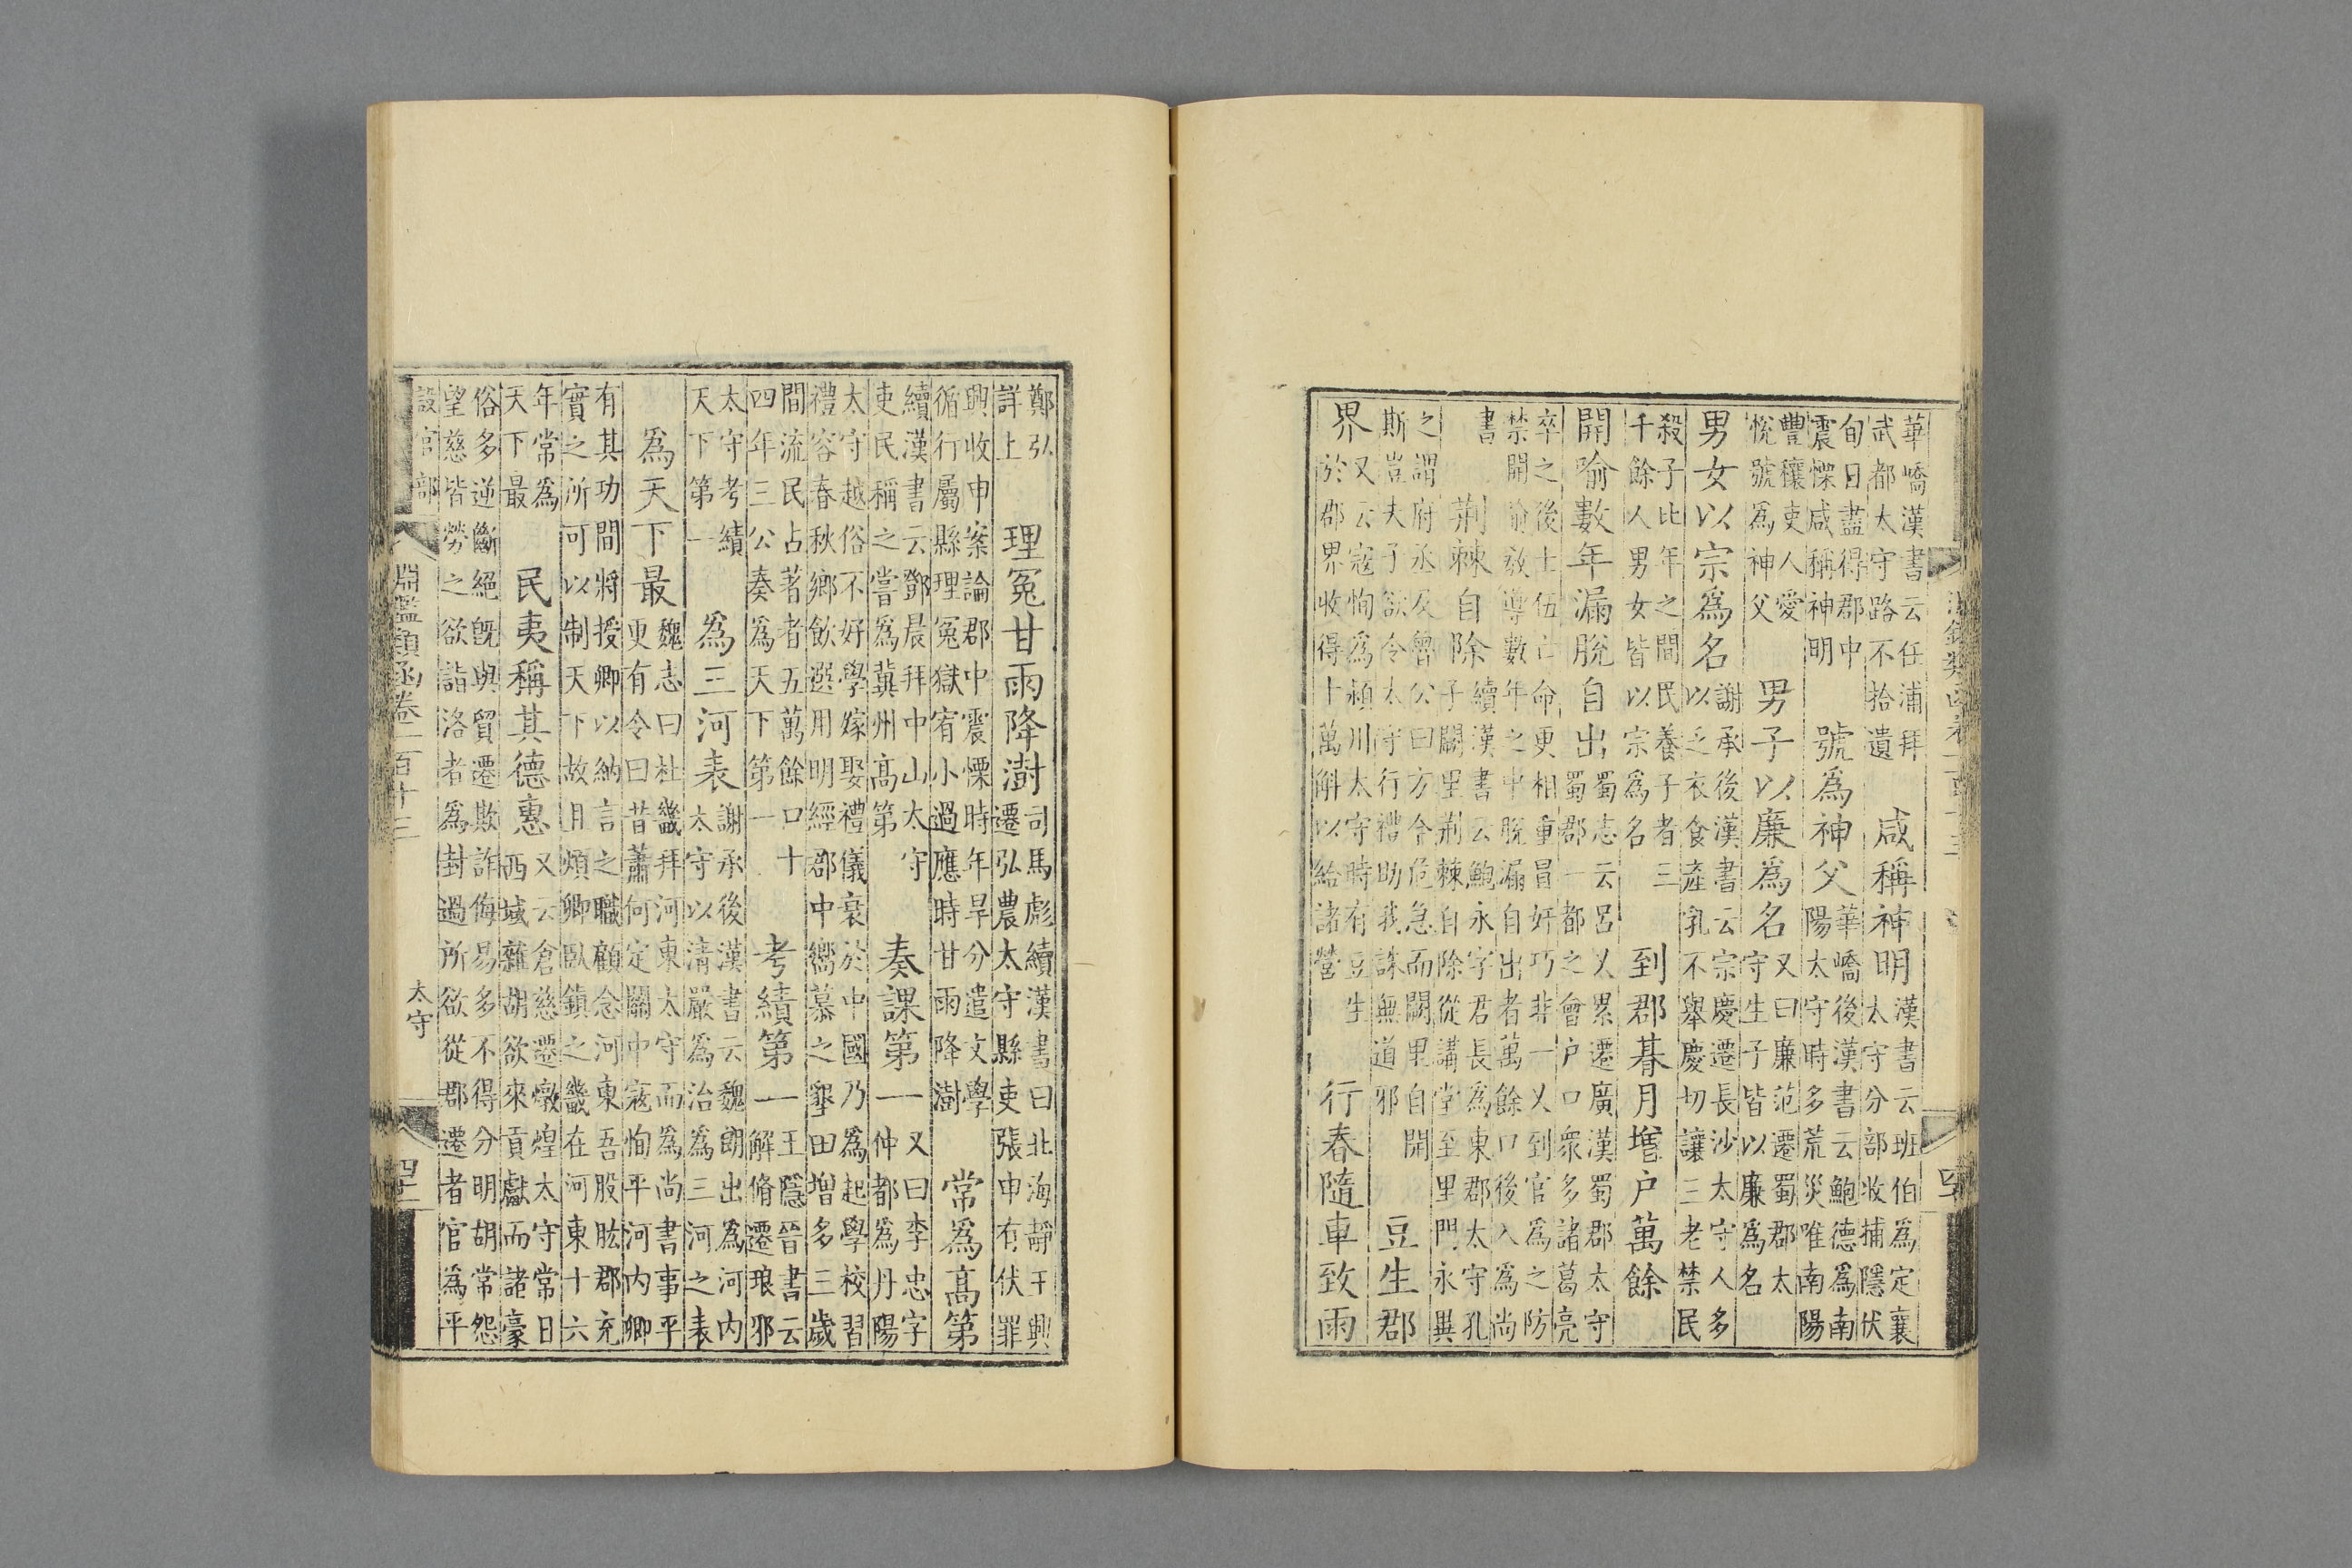 華嶠漢書云任浦拜
武都太守路不拾遺
咸稱神明
漢書云班伯為定襄
太守分部收捕隱伏
旬日盡得郡中
震慄咸稱神明
號為神父
華嶠後漢書云鮑德為南
陽太守時多荒災唯南陽
豐穰吏人愛
悅號為神父
男子以廉為名
又曰廉范遷蜀郡太
守生子皆以廉為名
男女以宗為名
謝承後漢書云宗慶遷長沙太守人多
以乏衣食產乳不舉慶切讓三老禁民
殺子比年之間民養子者三
千餘人男女皆以宗為名
到郡朞月增户萬餘
開喻數年漏脫自出
蜀志云呂乂累遷廣漢蜀郡太守
蜀郡一都之會户口衆多諸葛亮
卒之後士伍亡命更相重冒奸巧非一乂到官為之防
禁開喻敎導數年之中脫漏自出者萬餘口後入為尚
書
荆棘自除
續漢書云鮑永字君長為東郡太守孔
子闕里荆棘自除從講堂至里門永異
之謂府丞及魯公曰方今危急而闕里自開
斯豈夫子欲令太守行禮助我誅無道邪
豆生郡
界
又云寇恂為潁川太守時有豆生
於郡界收得十萬斛以給諸營
行春隨車致雨
鄭弘
詳上
理冤甘雨降澍
司馬彪續漢書曰北海靜王興
遷弘農太守縣吏張申有伏罪
興收申案論郡中震慄時年旱分遣文學
循行屬縣理冤獄宥小過應時甘雨降澍
常為高第
續漢書云鄧晨拜中山太守
吏民稱之嘗為冀州高第
奏課第一
又曰李忠字
仲都為丹陽
太守越俗不好學嫁娶禮儀衰於中國乃為起學校習
禮容春秋鄉飲選用明經郡中嚮慕之墾田增多三歲
間流民占著者五萬餘口十
四年三公奏為天下第一
考績第一
王隱晉書云
解脩遷琅邪
太守考績
天下第一
為三河表
謝承後漢書云魏朗出為河內
太守以清嚴為治為三河之表
為天下最
魏志曰杜畿拜河東太守而為尚書事平
更有令曰昔蕭何定關中寇恂平河內卿
有其功間將授卿以納言之職顧念河東吾股肱郡充
實之所可以制天下故且煩卿臥鎮之畿在河東十六
年常為
天下最
民夷稱其德惠
又云倉慈遷燉煌太守常日
西域雜胡欲來貢獻而諸豪
俗多逆斷絕既與貿遷欺詐侮易多不得分明胡常怨
望慈皆勞之欲詣洛者為封過所欲從郡還者官為平
設官部
淵鑑類函卷一百十三
太守